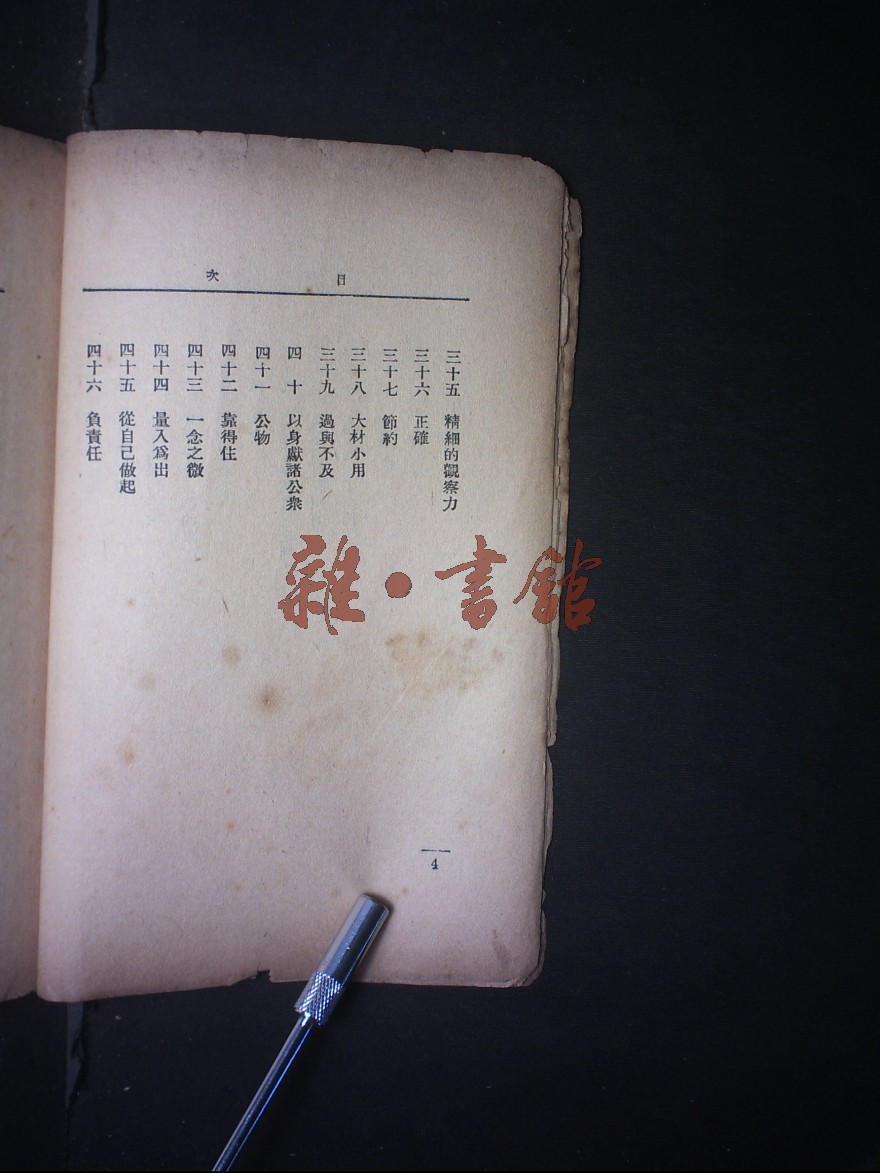 目次
三十五 精細的觀察力
三十六 正確
三十七 節約
三十八 大材小用
三十九 過與不及
四十 以身獻諸公衆
四十一 公物
四十二 靠得住
四十三 一念之微
四十四 量入爲出
四十五 從自己做起
四十六 負責任
4
雜·書館